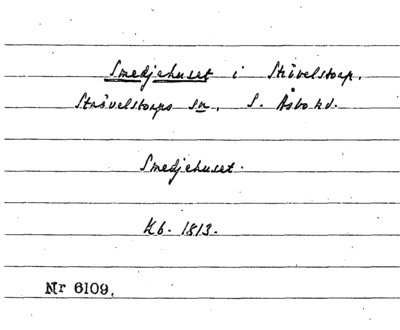 Smedjehuset i Strövelstorp.
Strövelstorps sn. S. Åsbo hd.
Smedjehuset.
Kb. 1813.
Nr 6109.